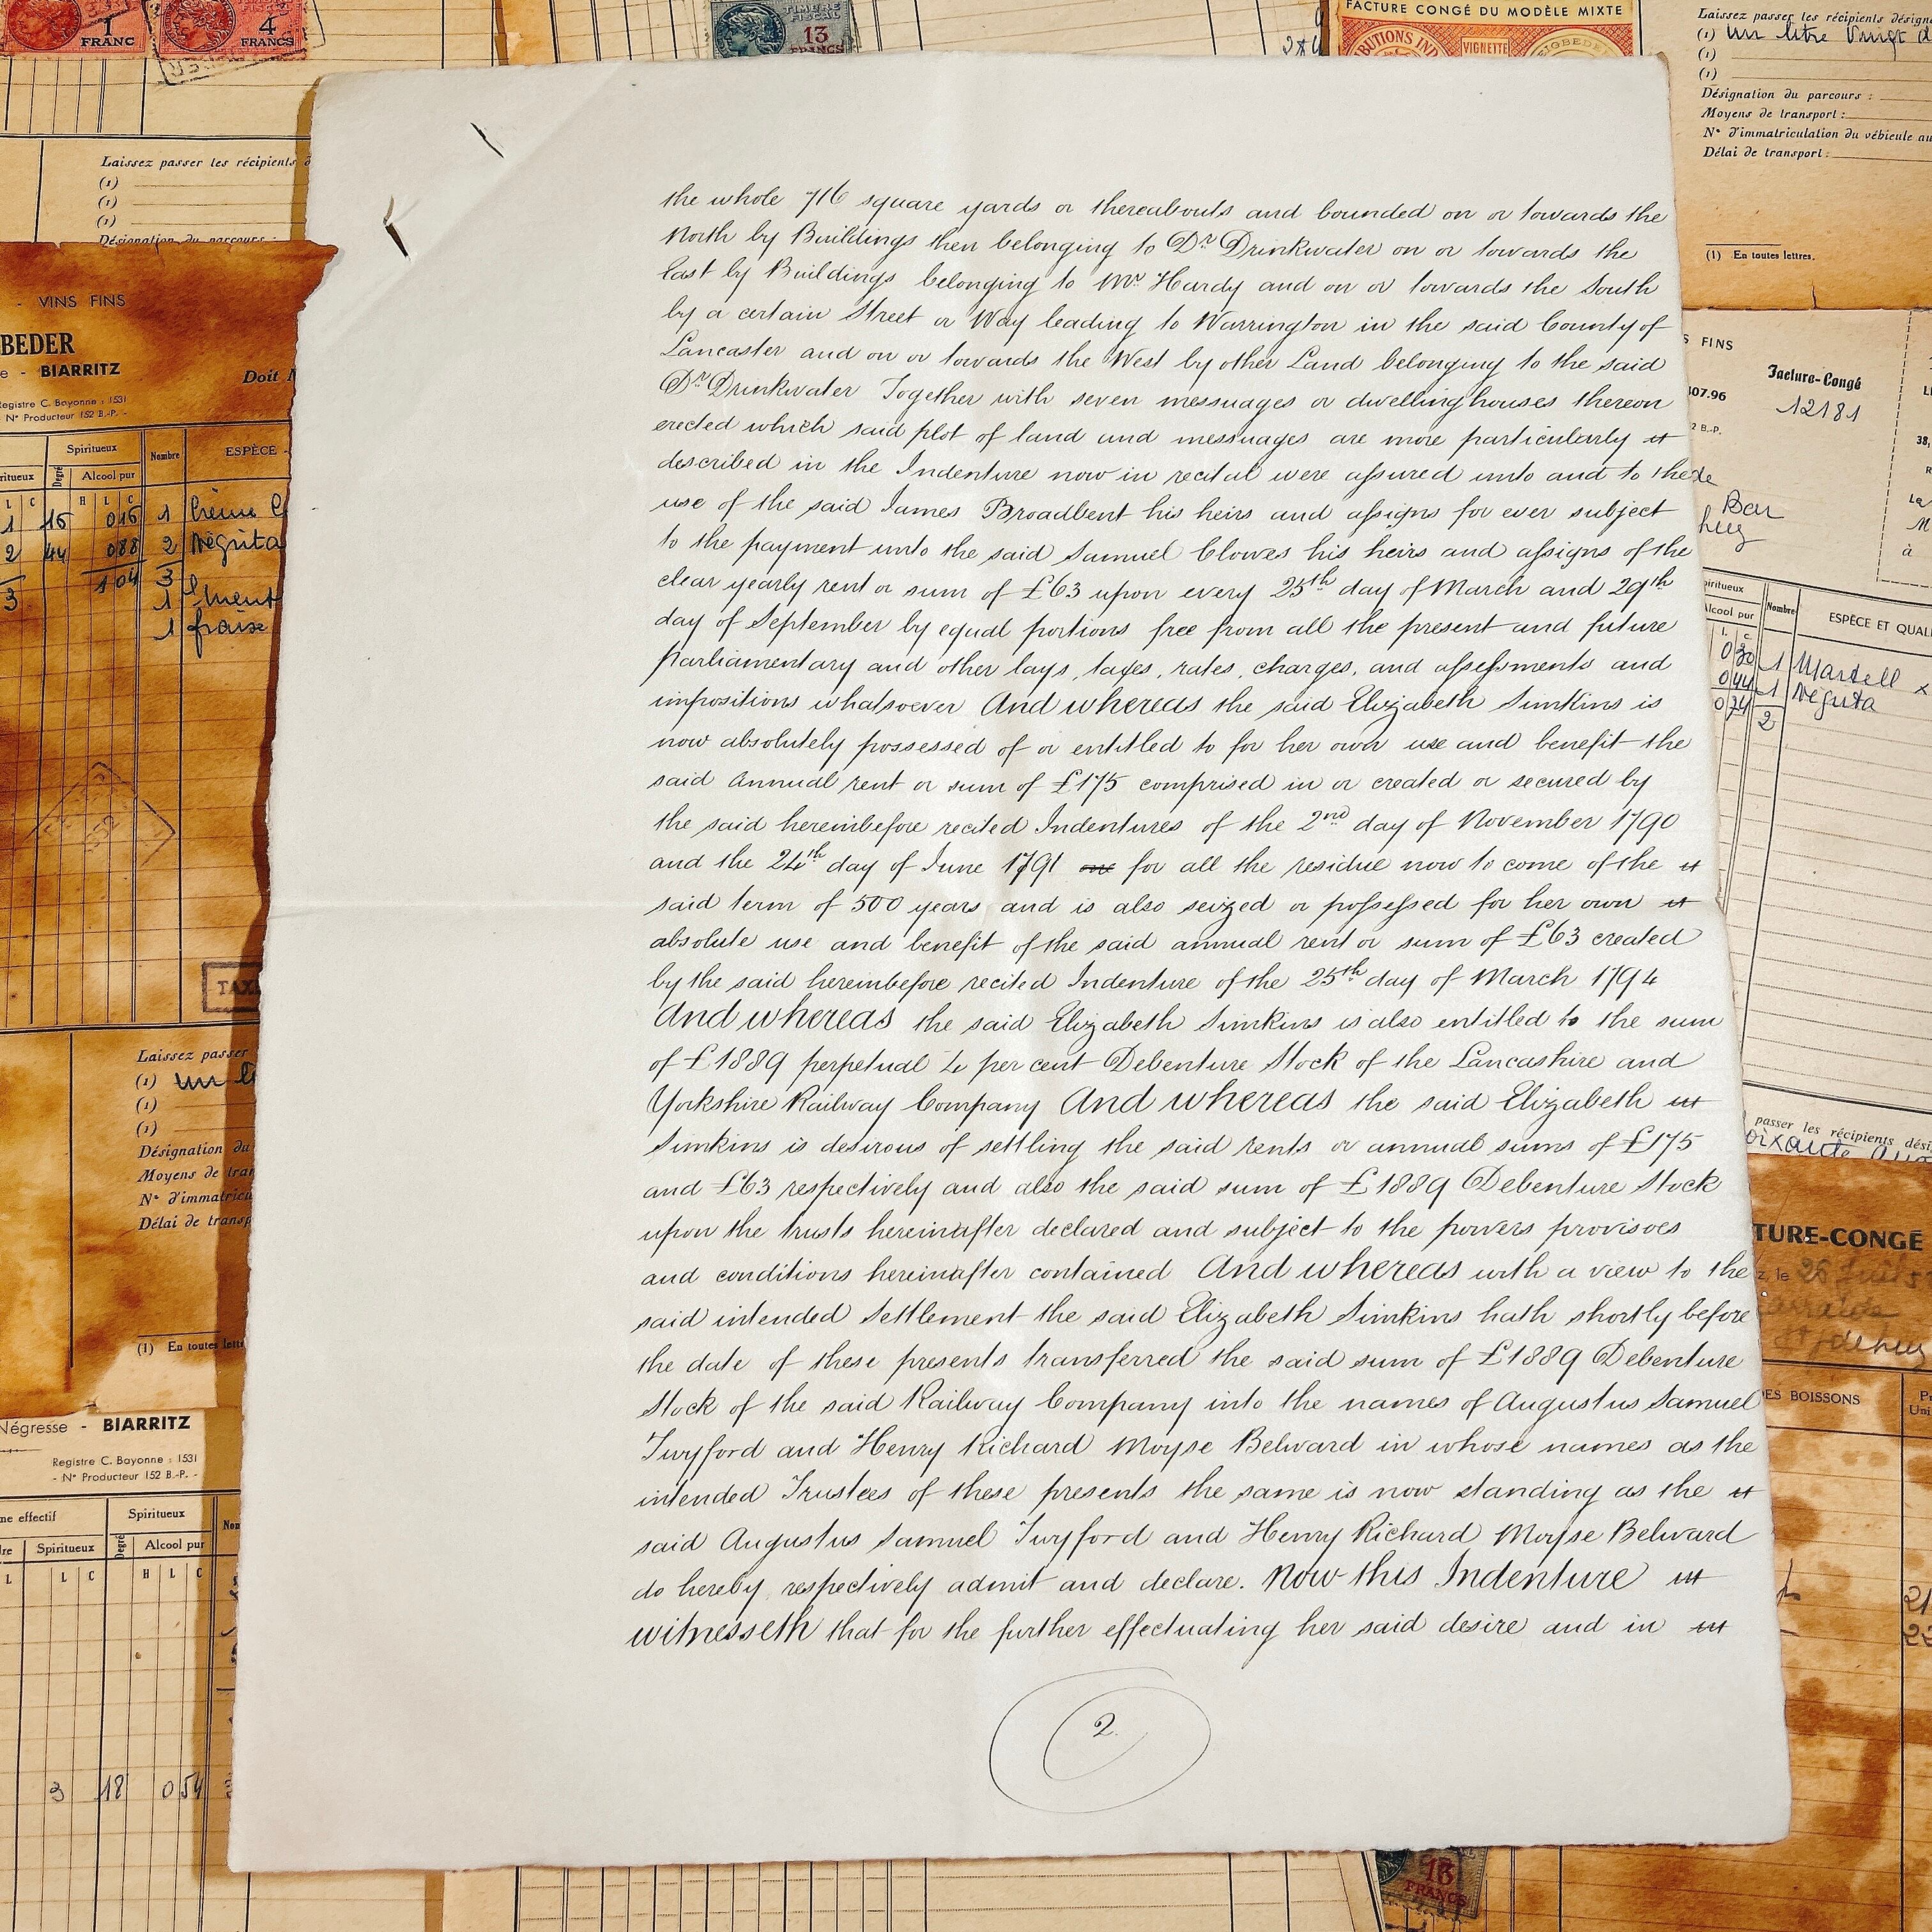 1 FRANC
4 FRANCS
TIMBRE FISCAL
13 FRANCS
FACTURE CONGÉ DU MODÈLE MIXTE
VIGNETTE
Laissez passer les récipients
(1)
(1)
(1)
Désignation du parcours :
Laissez passer les récipients désign
(1) un litre vingt d
(1)
(1)
Désignation du parcours :
Moyens de transport :
N° d'immatriculation du véhicule au
Délai de transport :
(1) En toutes lettres.
- VINS FINS
BEDER
e - BIARRITZ
Doit
Registre C. Bayonne : 1531
- N° Producteur 152 B.-P. -
Spiritueux
Nombre
ESPÈCE
ritueux
Degré
Alcool pur
L C
H L C
1 16 016 1 Crème
2 44 088 2 Néguta
3 104 3
1 Ment
1 fraise
TAX
Laissez passer
(1) un
(1)
(1)
Désignation du
Moyens de tran
N° d'immatricu
Délai de transp
(1) En toutes lett
Négresse - BIARRITZ
Registre C. Bayonne : 1531
- N° Producteur 152 B.-P. -
me effectif
Spiritueux
Spiritueux
Degré
Alcool pur
L
L C
H L C
3 18 0 54
the whole 716 square yards or thereabouts and bounded on or towards the
North by Buildings then belonging to Dr. Drinkwater on or towards the
East by Buildings belonging to Mr. Hardy and on or towards the South
by a certain Street or Way leading to Warrington in the said County of
Lancaster and on or towards the West by other Land belonging to the said
Dr. Drinkwater Together with seven messuages or dwellinghouses thereon
erected which said plot of land and messuages are more particularly
described in the Indenture now in recital were assured unto and to the
use of the said James Broadbent his heirs and assigns for ever subject
to the payment unto the said Samuel Clowes his heirs and assigns of the
clear yearly rent or sum of £63 upon every 25th day of March and 29th
day of September by equal portions free from all the present and future
parliamentary and other lays, taxes, rates, charges, and assessments and
impositions whatsoever And whereas the said Elizabeth Simkins is
now absolutely possessed of or entitled to for her own use and benefit the
said annual rent or sum of £175 comprised in or created or secured by
the said hereinbefore recited Indentures of the 2nd day of November 1790
and the 24th day of June 1791 for all the residue now to come of the
said term of 500 years and is also seized or possessed for her own
absolute use and benefit of the said annual rent or sum of £63 created
by the said hereinbefore recited Indenture of the 25th day of March 1794
And whereas the said Elizabeth Simkins is also entitled to the sum
of £1889 perpetual 4 per cent Debenture Stock of the Lancashire and
Yorkshire Railway Company And whereas the said Elizabeth
Simkins is desirous of settling the said rents or annual sums of £175
and £63 respectively and also the said sum of £1889 Debenture Stock
upon the trusts hereinafter declared and subject to the powers provisoes
and conditions hereinafter contained And whereas with a view to the
said intended Settlement the said Elizabeth Simkins hath shortly before
the date of these presents transferred the said sum of £1889 Debenture
Stock of the said Railway Company into the names of Augustus Samuel
Twyford and Henry Richard Moyse Belward in whose names as the
intended Trustees of these presents the same is now standing as the
said Augustus Samuel Twyford and Henry Richard Moyse Belward
do hereby respectively admit and declare. Now this Indenture
witnesseth that for the further effectuating her said desire and in
2.
S FINS
Facture-Congé
12181
407.96
2 B.-P.
Bar
à
piritueux
Alcool pur
Nombre
ESPÈCE ET QUALI
L. C.
0 30 1 Martell
0 44 1 Néguta
0 74 2
passer les récipients dési
TURE-CONGÉ
le 26
ES BOISSONS
13 FRANCS